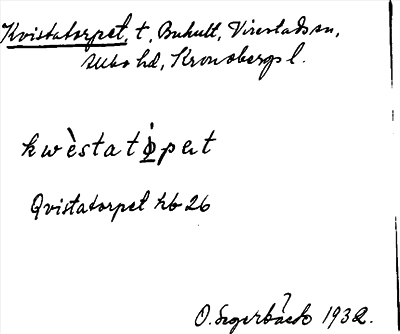 Kvistatorpet, t, Buhult, Virestads sn,
Allbo hd, Kronobergs l.
kwèstatɷ̀pɛt
Qvistatorpet hb 26
O. Segerbäck 1932.